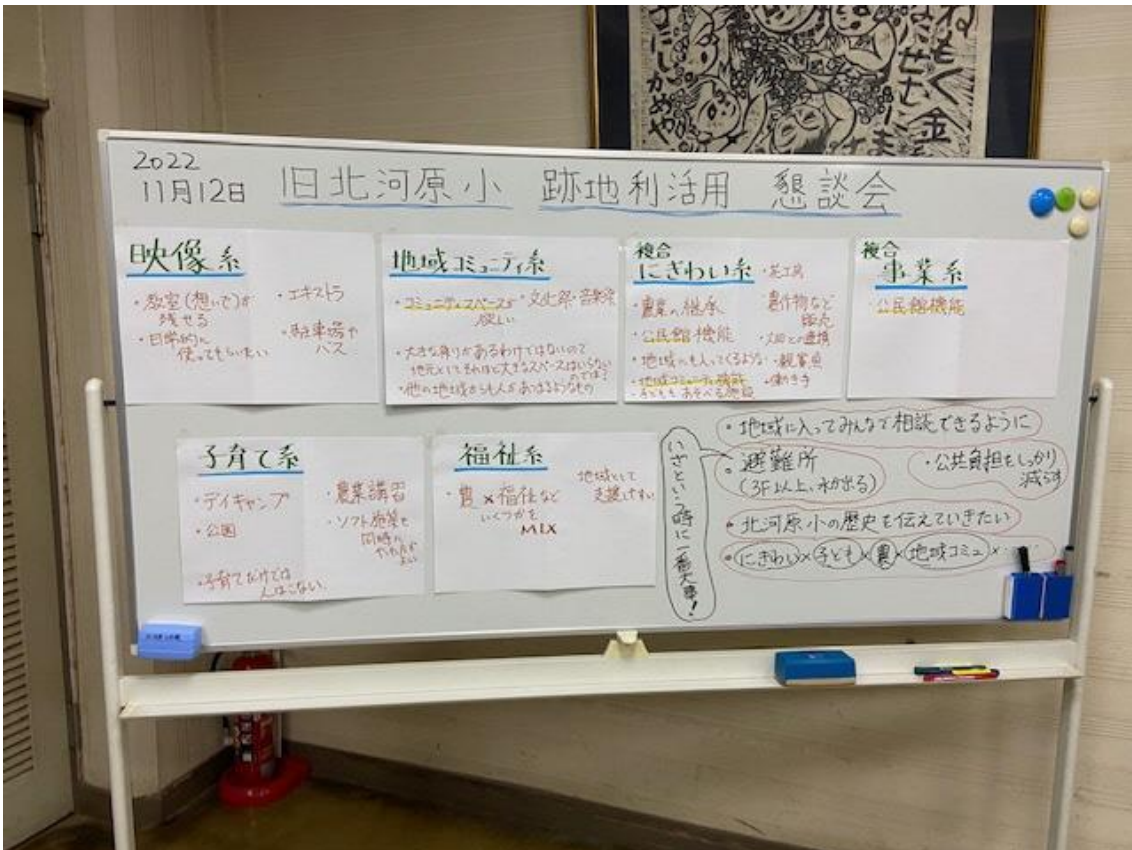 2022
11月12日
旧北河原小 跡地利活用 懇談会
映像系
・教室(想いで)が
残せる
・日常的に
使ってもらいたい
・エキストラ
・駐車場や
バス
地域コミュニティ系
・コミュニティスペースが
欲しい
・文化祭・音楽祭
・大きな祭りがあるわけではないので
地元としてそれほど大きなスペースはいらない
のでは?
・他の地域からも人があつまるようなもの
複合
にぎわい系
・農業の継承
・公民館機能
・地域にも入ってくるような
・地域コミュニティ機能
・子どもあそべる施設
・花工房
・農作物など
販売
との連携
・観賞点
・働き手
複合
事業系
・公民館機能
子育て系
・デイキャンプ
・公園
・子育てだけでは
人はこない
・農業講習
・ソフト施策を
同時に
やれれば
よい
福祉系
・農×福祉など
いくつかを
MIX
地域として
支援しやすい
いざという時に一番大事!
・地域に入ってみんなで相談できるように
・避難所
(3F以上、水が出る)
・公共負担をしっかり
減らす
・北河原小の歴史を伝えていきたい
・にぎわい×子ども×農×地域コミュ×…